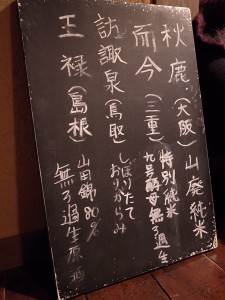 秋鹿（大阪）山廃純米
而今（三重）特別純米
九号酵母無ろ過生
諏訪泉（鳥取）しぼりたて
おりがらみ
王祿（島根）山田錦80％
無ろ過生原酒